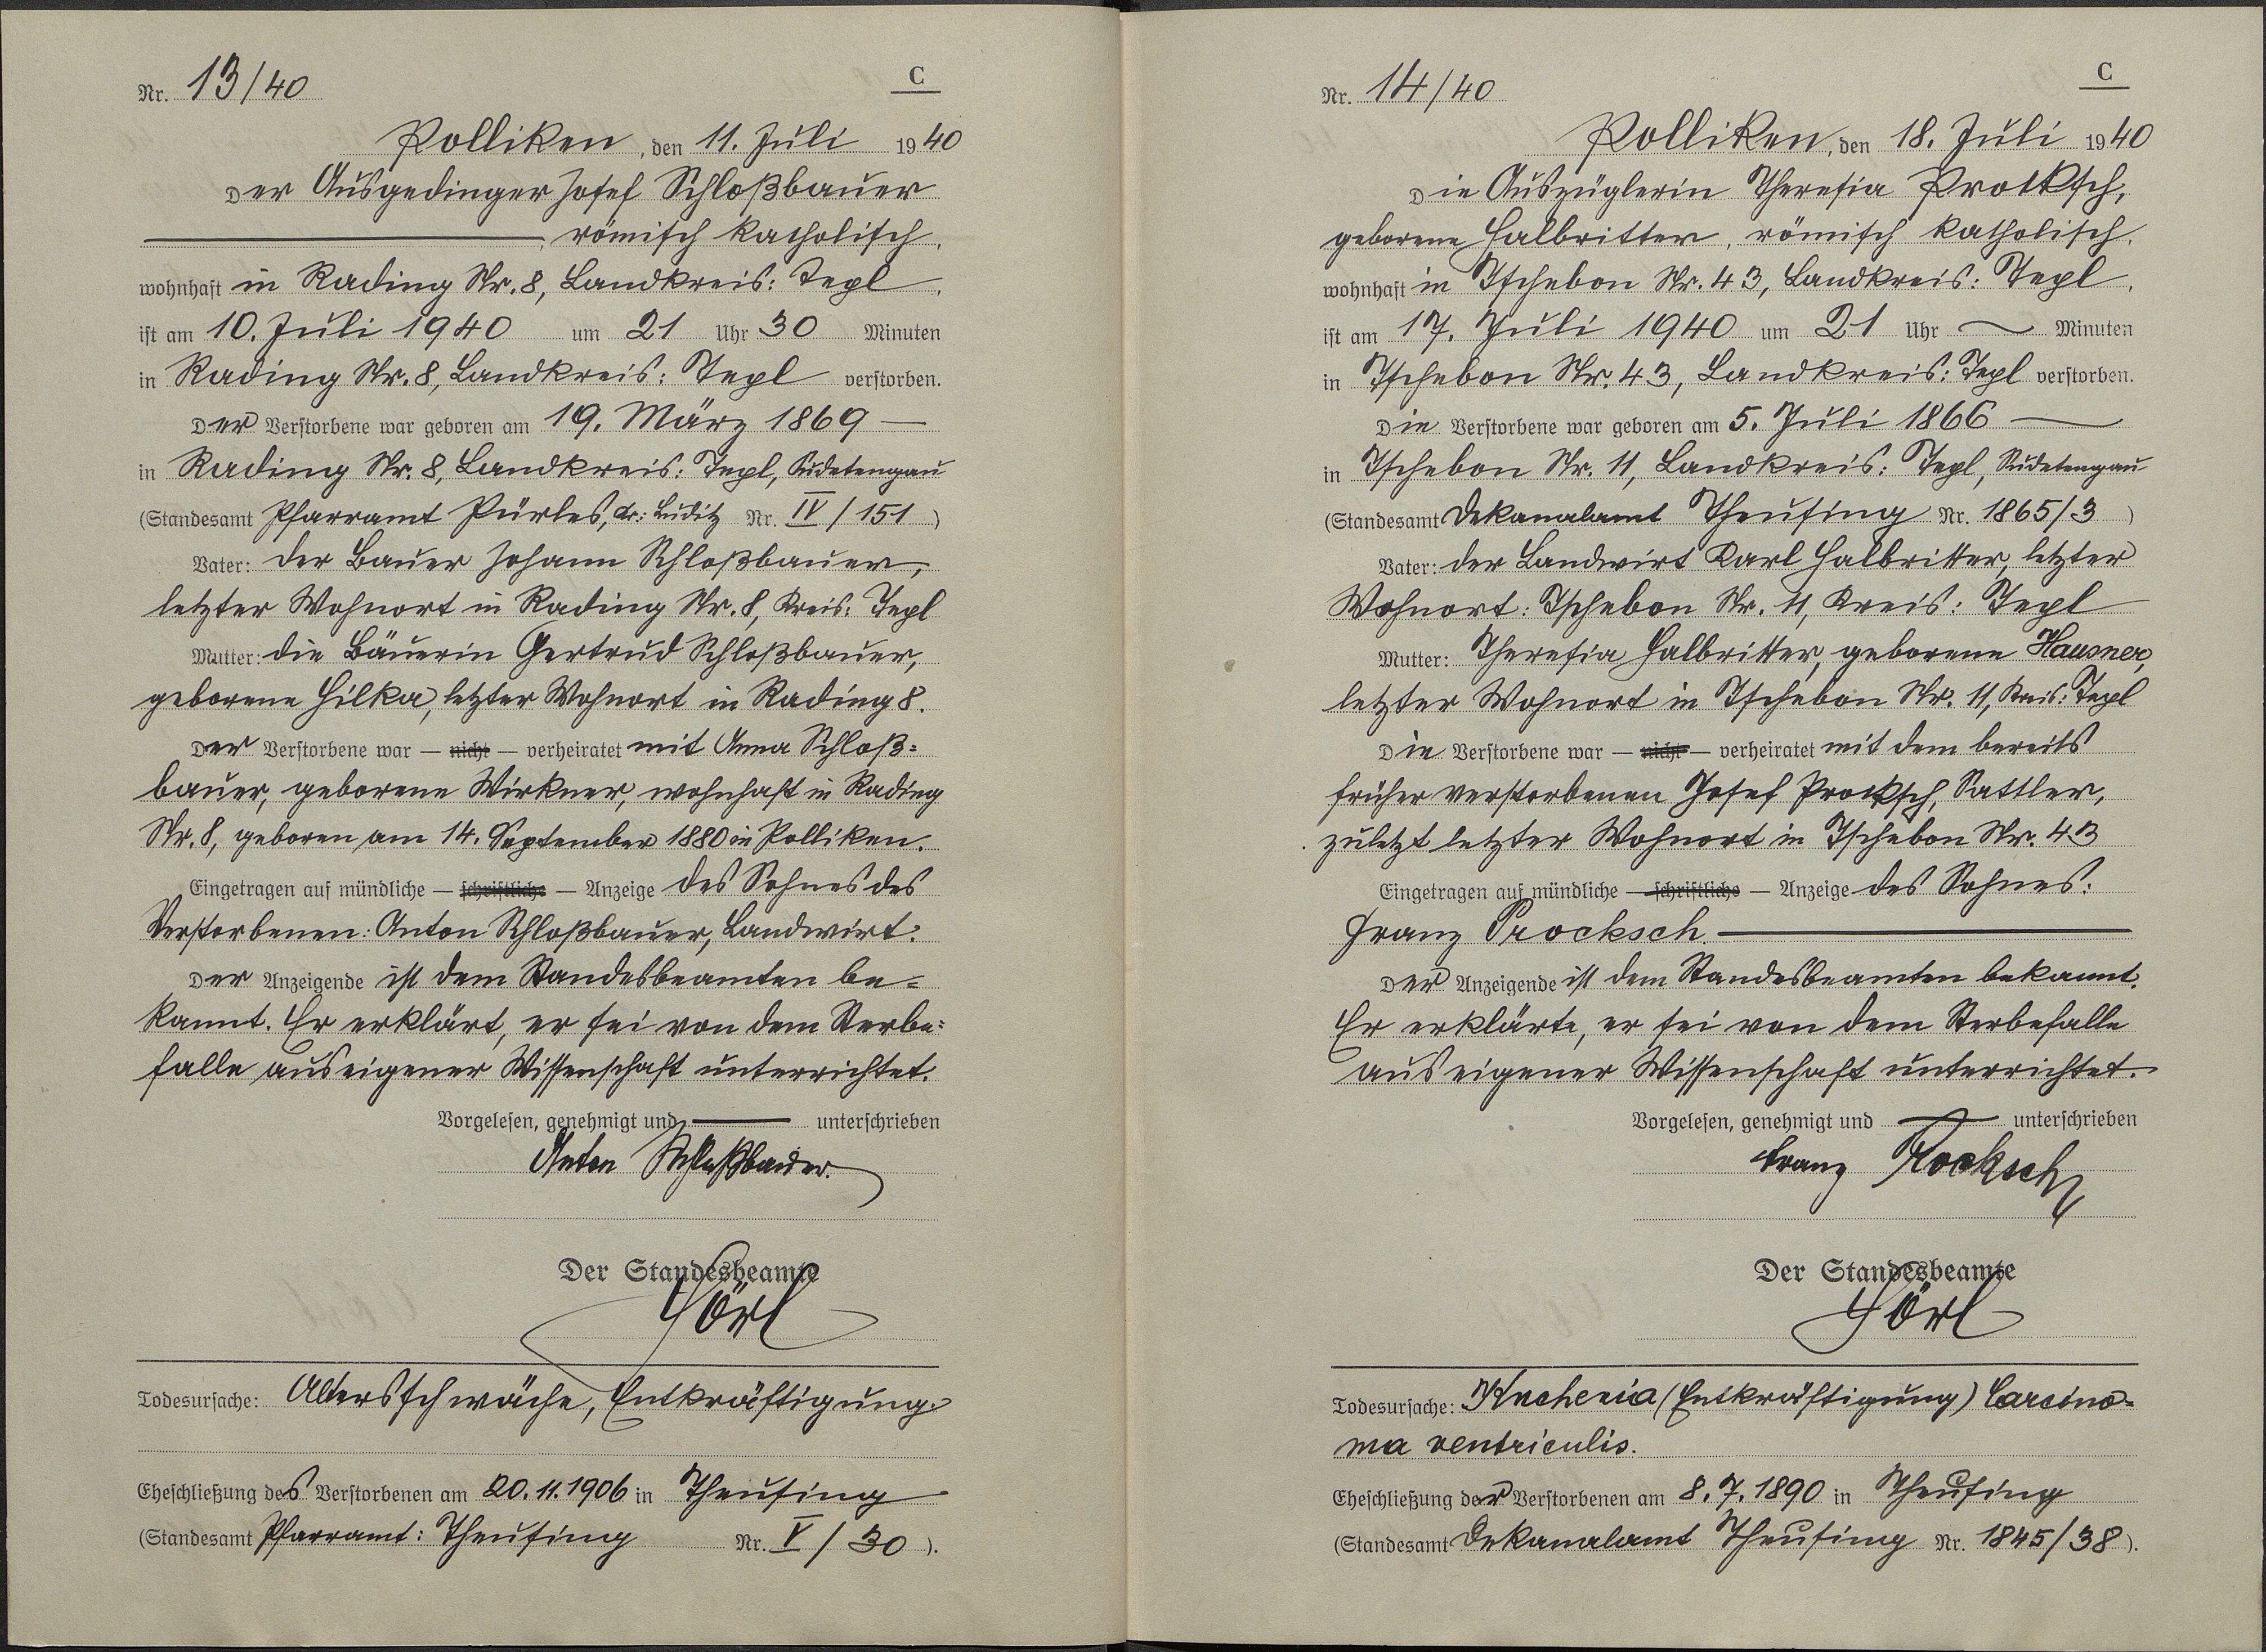 Nr. 13/40
C
Polliken, den 11. Juli 1940
Der Ausgedinger Josef Schloßbauer
römisch katholisch,
wohnhaft in Rading Nr. 8, Landkreis: Tepl,
ist am 10. Juli 1940 um 21 Uhr 30 Minuten
in Rading Nr. 8, Landkreis: Tepl verstorben.
Der Verstorbene war geboren am 19. März 1869 —
in Rading Nr. 8, Landkreis: Tepl, Sudetengau
(Standesamt Pfarramt Pürles, Kr: Luditz Nr. IV/151)
Vater: der Bauer Johann Schloßbauer,
letzter Wohnort in Rading Nr. 8, Kreis: Tepl
Mutter: die Bäuerin Gertrud Schloßbauer,
geborene Hilka, letzter Wohnort in Rading 8.
Der Verstorbene war — nicht — verheiratet mit Anna Schloß=
bauer, geborene Wirkner, wohnhaft in Rading
Nr. 8, geboren am 14. September 1880 in Polliken.
Eingetragen auf mündliche — schriftliche — Anzeige des Sohnes des
Verstorbenen: Anton Schloßbauer, Landwirt.
Der Anzeigende ist dem Standesbeamten be=
kannt. Er erklärt, er sei von dem Sterbe=
falle aus eigener Wissenschaft unterrichtet.
Vorgelesen, genehmigt und — unterschrieben
Anton Schloßbauer.
Der Standesbeamte
Hörl
Todesursache: Altersschwäche, Entkräftigung.
Eheschließung des Verstorbenen am 20.11.1906 in Theusing
(Standesamt Pfarramt: Theusing Nr. V/30).
Nr. 14/40
C
Polliken, den 18. Juli 1940
Die Auszüglerin Theresia Procksch,
geborene Halbritter, römisch katholisch,
wohnhaft in Tschebon Nr. 43, Landkreis: Tepl,
ist am 17. Juli 1940 um 21 Uhr — Minuten
in Tschebon Nr. 43, Landkreis: Tepl verstorben.
Die Verstorbene war geboren am 5. Juli 1866 —
in Tschebon Nr. 11, Landkreis: Tepl, Sudetengau
(Standesamt Dekanalamt Theusing Nr. 1865/3)
Vater: der Landwirt Karl Halbritter, letzter
Wohnort: Tschebon Nr. 11, Kreis: Tepl
Mutter: Theresia Halbritter, geborene Hausner,
letzter Wohnort in Tschebon Nr. 11, Kreis: Tepl
Die Verstorbene war — nicht — verheiratet mit dem bereits
früher verstorbenen Josef Procksch, Sattler,
zuletzt letzter Wohnort in Tschebon Nr. 43
Eingetragen auf mündliche — schriftliche — Anzeige des Sohnes:
Franz Procksch. —
Der Anzeigende ist dem Standesbeamten bekannt.
Er erklärte, er sei von dem Sterbefalle
aus eigener Wissenschaft unterrichtet.
Vorgelesen, genehmigt und — unterschrieben
Franz Procksch
Der Standesbeamte
Hörl
Todesursache: Kachexia (Entkräftigung) Carcino=
ma ventriculis.
Eheschließung der Verstorbenen am 8.7.1890 in Theusing
(Standesamt Dekanalamt Theusing Nr. 1845/38).